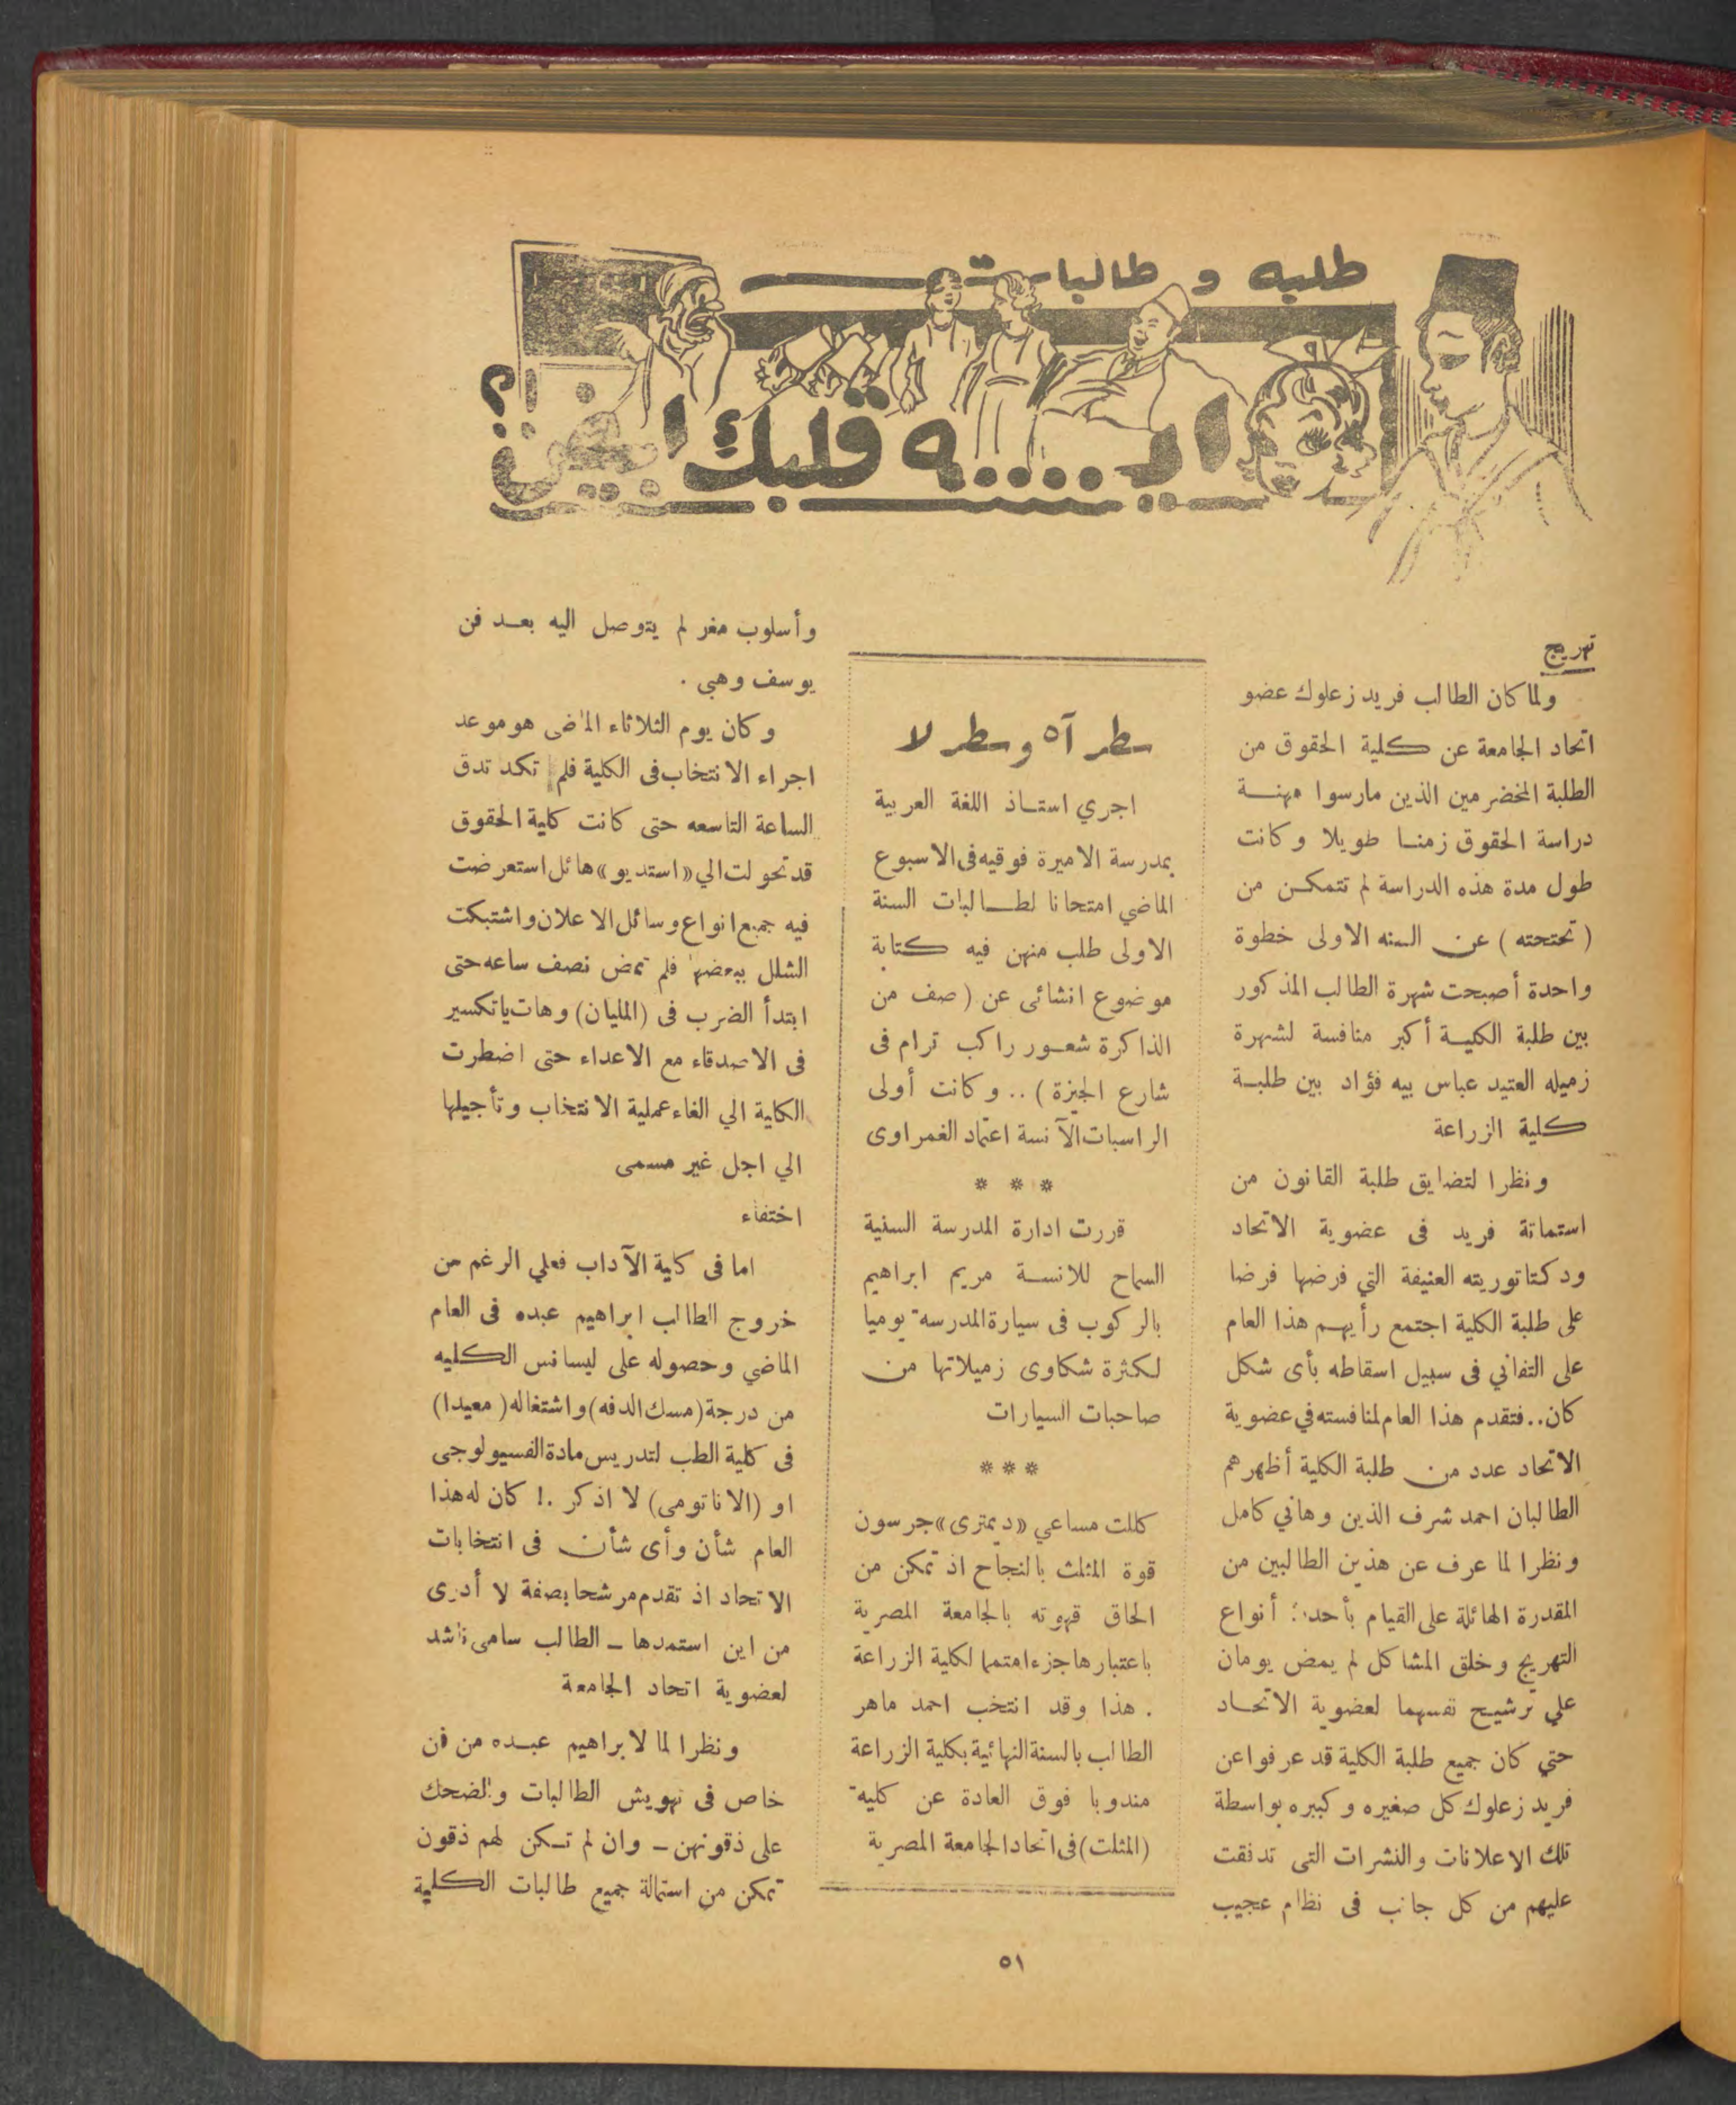 طلبه و طالبات
ايـ....ـه قلبك ابيض !؟
تهريج
ولما كان الطالب فريد زعلوك عضو
اتحاد الجامعة عن كلية الحقوق من
الطلبة المخضرمين الذين مارسوا مهنـــة
دراسة الحقوق زمنـا طويلا وكانت
طول مدة هذه الدراسة لم تتمكـن من
( تحتحته ) عن السنه الاولى خطوة
واحدة أصبحت شهرة الطالب المذكور
بين طلبة الكليـة أكبر منافسة لشهرة
زميله العتيد عباس بيه فؤاد بين طلبـة
كلية الزراعة
ونظرا لتضايق طلبة القانون من
استماتة فريد فى عضوية الاتحاد
ودكتاتوريته العنيفة التي فرضها فرضا
على طلبة الكلية اجتمع رأيهـم هذا العام
على التفانى فى سبيل اسقاطه بأى شكل
كان.. فتقدم هذا العام لمنافسته في عضوية
الاتحاد عدد من طلبة الكلية أظهرهم
الطالبان احمد شرف الذين وهاني كامل
ونظرا لما عرف عن هذين الطالبين من
المقدرة الهائلة على القيام بأحدث أنواع
التهريج وخلق المشاكل لم يمض يومان
علي ترشيـح نفسهما لعضوية الاتحـاد
حتي كان جميع طلبة الكلية قد عرفوا عن
فريد زعلوك كل صغيره وكبيره بواسطة
تلك الاعلانات والنشرات التى تدفقت
عليهم من كل جانب فى نظام عجيب
سطر آه وسطر لا
اجري استـاذ اللغة العربية
بمدرسة الاميرة فوقيه فى الاسبوع
الماضي امتحانا لطـالبات السنة
الاولى طلب منهن فيه كتابة
موضوع انشائى عن ( صف من
الذاكرة شعـور راكب ترام فى
شارع الجيزة ) .. وكانت أولى
الراسبات الآنسة اعتماد الغمراوى
* * *
قررت ادارة المدرسة السنية
السماح للانسـة مريم ابراهيم
بالركوب فى سيارة المدرسة يوميا
لكثرة شكاوى زميلاتها من
صاحبات السيارات
* * *
كللت مساعي «ديمترى» جرسون
قوة المثلث بالنجاح اذ تمكن من
الحاق قهوته بالجامعة المصرية
باعتبارها جزءا متمما لكلية الزراعة
. هذا وقد انتخب احمد ماهر
الطالب بالسنة النهائية بكلية الزراعة
مندوبا فوق العادة عن كلية
(المثلت) فى اتحاد الجامعة المصرية
وأسلوب مغر لم يتوصل اليه بعـد فن
يوسف وهبى .
وكان يوم الثلاثاء الماضى هو موعد
اجراء الانتخاب فى الكلية فلم تكد تدق
الساعة التاسعه حتى كانت كلية الحقوق
قد تحولت الي «استديو» هائل استعرضت
فيه جميع انواع وسائل الاعلان واشتبكت
الشلل ببعضها فلم تمض نصف ساعه حتى
ابتدأ الضرب فى (المليان) وهات يا تكسير
فى الاصدقاء مع الاعداء حتى اضطرت
الكلية الي الغاء عملية الانتخاب وتأجيلها
الي اجل غير مسمى
اختفاء
اما فى كلية الآداب فعلي الرغم من
خروج الطالب ابراهيم عبده فى العام
الماضي وحصوله على ليسانس الكليه
من درجة (مسك الدفه) واشتغاله (معيدا)
فى كلية الطب لتدريس مادة الفسيولوجى
او (الاناتومى) لا اذكر .! كان له هذا
العام شأن وأى شأن فى انتخابات
الاتحاد اذ تقدم مرشحا بصفة لا أدرى
من اين استمدها ـ الطالب سامى ناشد
لعضوية اتحاد الجامعة
ونظرا لما لابراهيم عبـده من فن
خاص فى تهويش الطالبات والضحك
على ذقونهن ـ وان لم تـكن لهم ذقون
تمكن من استمالة جميع طالبات الكلية
٥١